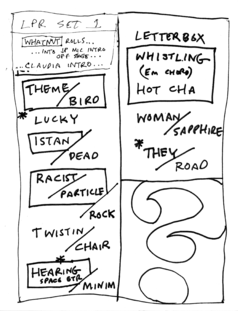 LPR SET 1
WHATNOT ROLLS...
...INTO LP MIC INTRO
OFF STAGE...
...CLAUDIA INTRO...
THEME/
BIRD
* LUCKY
ISTAN/
DEAD
RACIST/
PARTICLE/
ROCK
TWISTIN/
CHAIR
*
HEARING
SPACE GTR/
MINIM
LETTERBOX
WHISTLING
(Em CHORD)
HOT CHA
WOMAN/
SAPPHIRE
* THEY/
ROAD